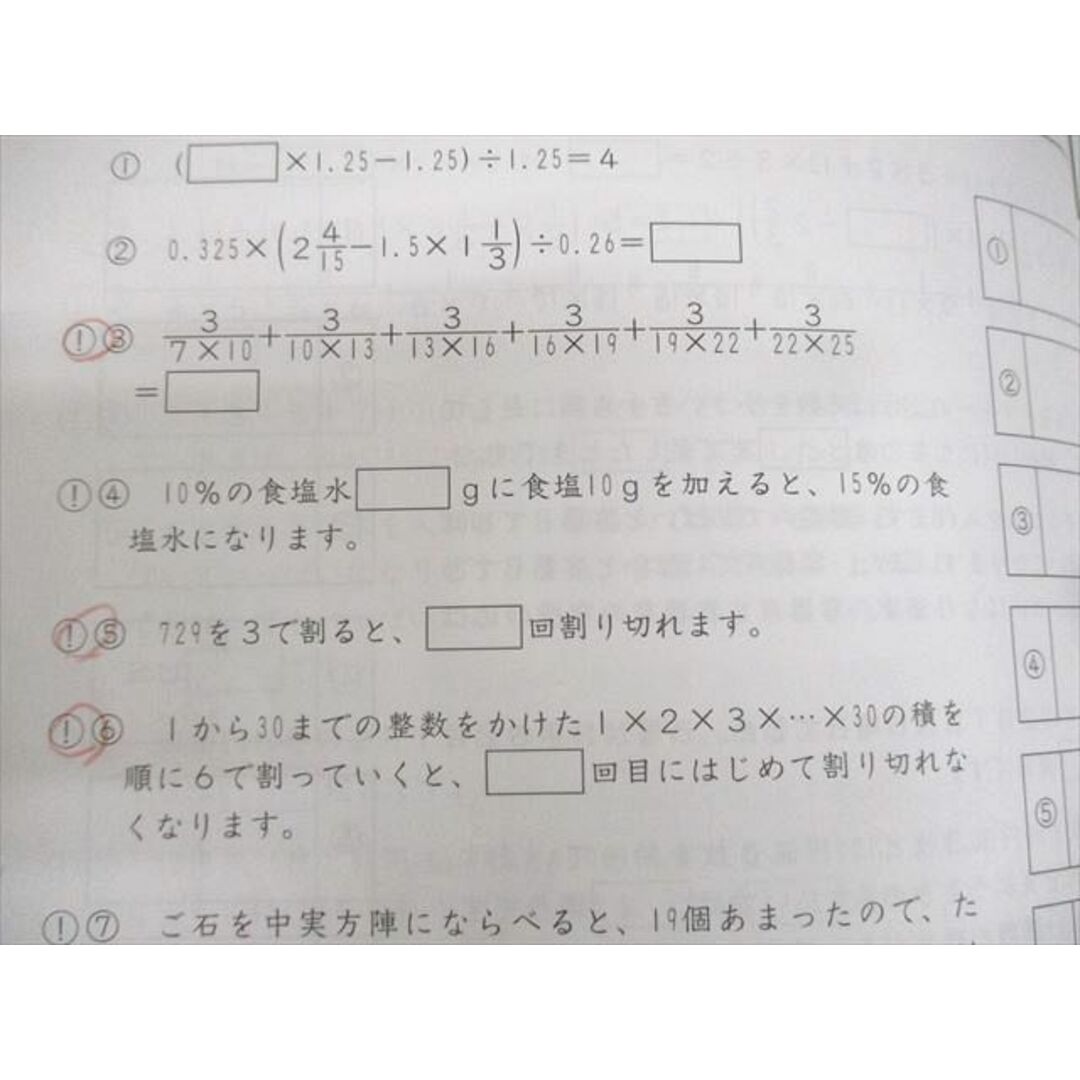 ① (□×1.25−1.25)÷1.25=4
② 0.325×(2 4/15−1.5×1 1/3)÷0.26=□
! ③ 3/7×10+3/10×13+3/13×16+3/16×19+3/19×22+3/22×25
=□
! ④ 10%の食塩水□gに食塩10gを加えると、15%の食
塩水になります。
! ⑤ 729を3で割ると、□回割り切れます。
! ⑥ 1から30までの整数をかけた1×2×3×…×30の積を
順に6で割っていくと、□回目にはじめて割り切れな
くなります。
! ⑦ ご石を中実方陣にならべると、19個あまったので、た
①
②
③
④
⑤